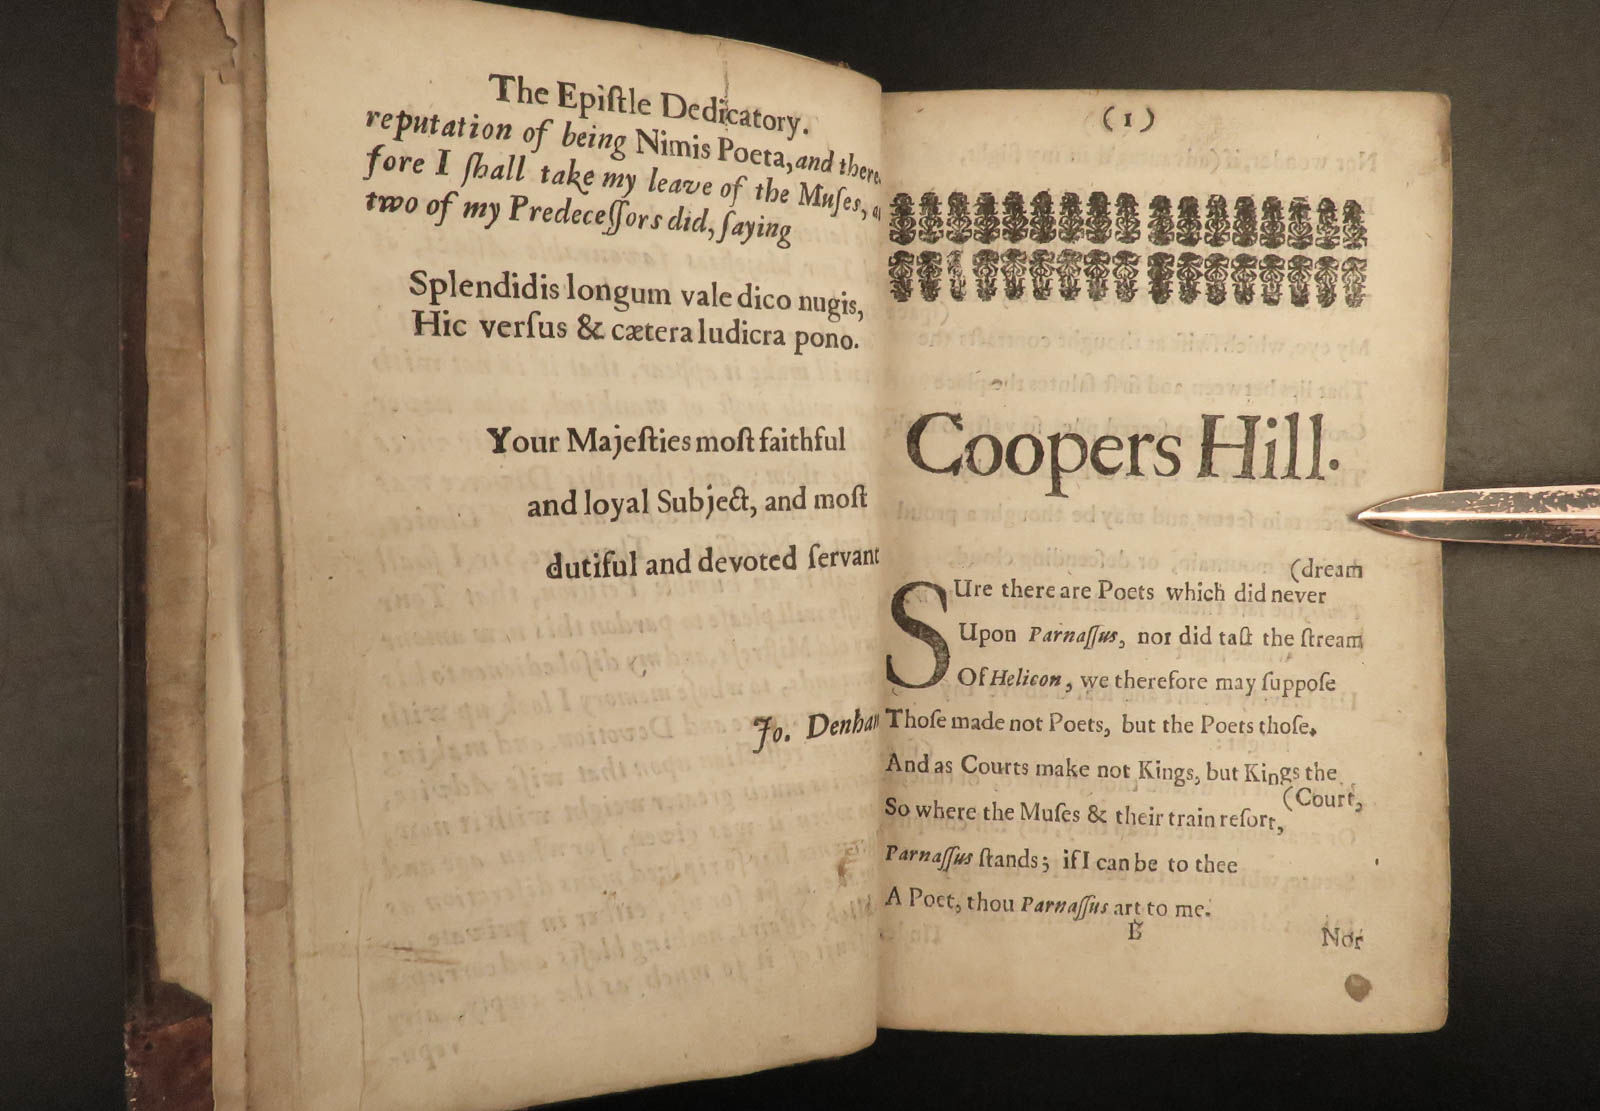 The Epiſtle Dedicatory.
reputation of being Nimis Poeta, and there-
fore I ſhall take my leave of the Muſes, as
two of my Predeceſſors did, ſaying
Splendidis longum vale dico nugis,
Hic verſus & cætera ludicra pono.
Your Majeſties moſt faithful
and loyal Subject, and moſt
dutiful and devoted ſervant
Jo. Denham
(1)
Coopers Hill.
(dream
SUre there are Poets which did never
Upon Parnaſſus, nor did taſt the ſtream
Of Helicon, we therefore may ſuppoſe
Thoſe made not Poets, but the Poets thoſe.
And as Courts make not Kings, but Kings the
(Court,
So where the Muſes & their train reſort,
Parnaſſus ſtands; if I can be to thee
A Poet, thou Parnaſſus art to me.
B
Nor